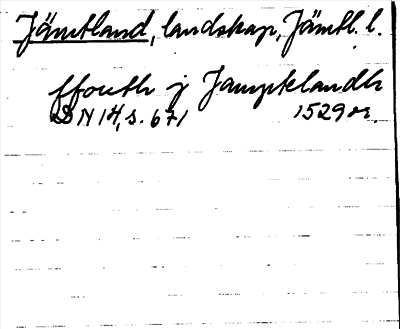 Jämtland, landskap, Jämtl. l.
ffouth j Jampteland​h
DN 14, s. 671 1529 or.